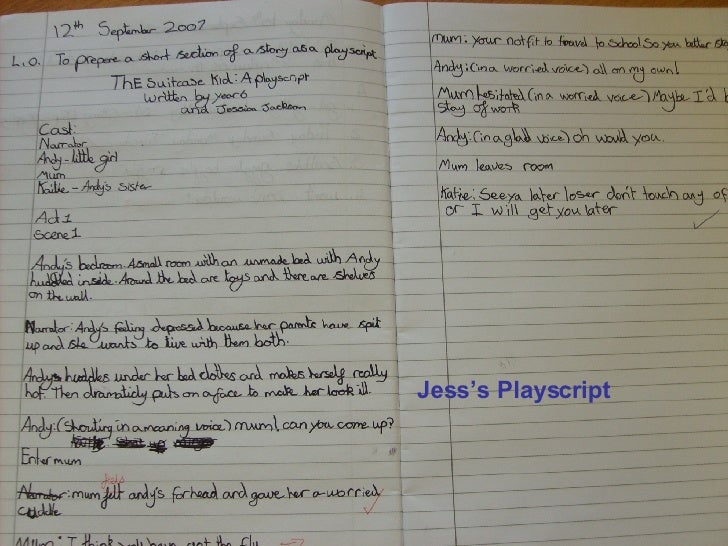 12th September 2007
L.O. To prepare a short section of a story as a playscript
ThE Suitcase Kid: A playscript
written by year 6
and Jessica Jackson
Cast:
Narrator
Andy - little girl
Mum
Katie - Andy's Sister
Act 1
Scene 1
Andy's bedroom. A small room with an unmade bed with Andy
huddled inside. Around the bed are toys and there are shelves
on the wall.
Narrator: Andy's feeling depressed because her parents have spit
up and she wants to live with them both.
Andy huddles under her bed clothes and makes herself really
hot. Then dramaticly puts on a face to make her look ill.
Andy: (Shouting in a moaning voice) mum! can you come up?
Enter mum
feels
Narrator: mum felt andy's forhead and gave her a worried
cuddle
Mum: I think you've got the flu
mum: your not fit to travel to School So you better sta
Andy: (in a worried voice) all on my own!
Mum hesitated (in a worried voice) Maybe I'd b
stay of work
Andy: (in a glad voice) oh would you.
Mum leaves room
Katie: See ya later loser don't touch any of
or I will get you later
Jess's Playscript